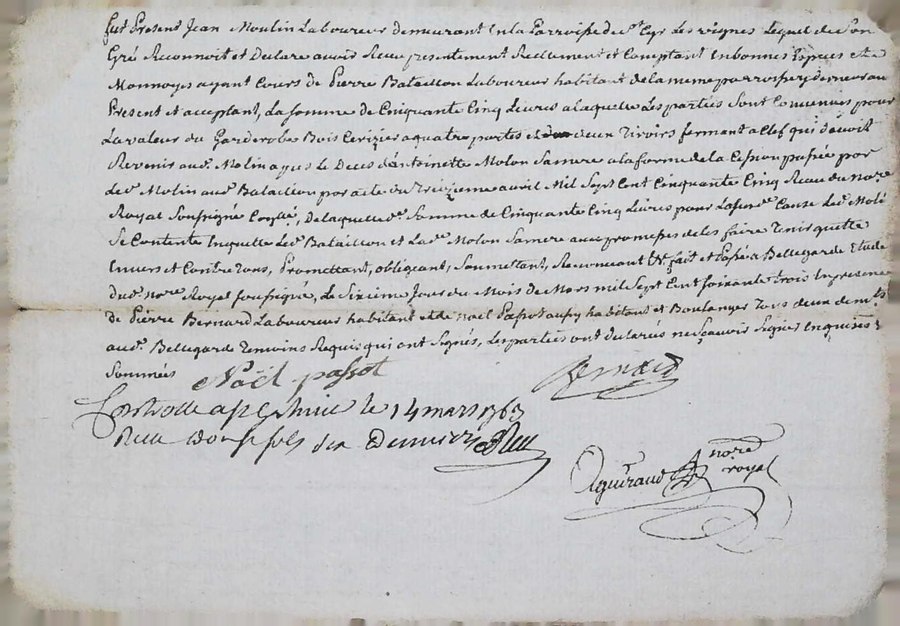 fut Present Jean Moulin Laboureur demeurant En la Parroisse de St Cyr Les vignes Lequel de Son
Gré Reconnoit et Declare avoir Receu presentement Reellement et Comptant En bonnes Especes et
Monnoyes ayant Cours de Pierre Bataillon Laboureur habitant de la meme parroisse y demeurant
Present et acceptant, La somme de Cinquante Cinq Livres a laquelle Les parties Sont Convenues pour
La valeur du Garderobes Bois Cerizier a quatre portes et deux Tiroirs fermant a Clef qui devoit
Revenir audt Molin apres le Deces d'antoinette Molon Sa mere a la forme de la Cession passée par
ledt Molin audt Bataillon par acte du Treizieme avril Mil Sept Cent Cinquante Cinq Receu du nore
Royal Soussigné Conllé, De laquelle de Somme de Cinquante Cinq Livres pour La susde Cause Ledt Molé
Se Contente En quitte Ledt Bataillon et Lade Molon Sa mere aux promesses de les faire Tenir quitte
Envers et Contre tous, Promettant, obligeant, Soumettant, Renonceant &c fait et Passé a Bellegarde Etude
dudt nore Royal soussigné, Le Sixieme Jour du Mois De Mars mil Sept Cent soixante Trois En presence
de Pierre Bernard Laboureur habitant et de noel Passot aussy habitant et Boulanger Tous deux demts
audt Bellegarde Temoins Requis qui ont Signés, Les parties ont Declarés ne Sçavoir Signer Enquises &
Sommées
Noël passot
Bernard
Controllé a le 14 mars 1763
Receu Douze sols six Deniers
nore
Aguiraud royal